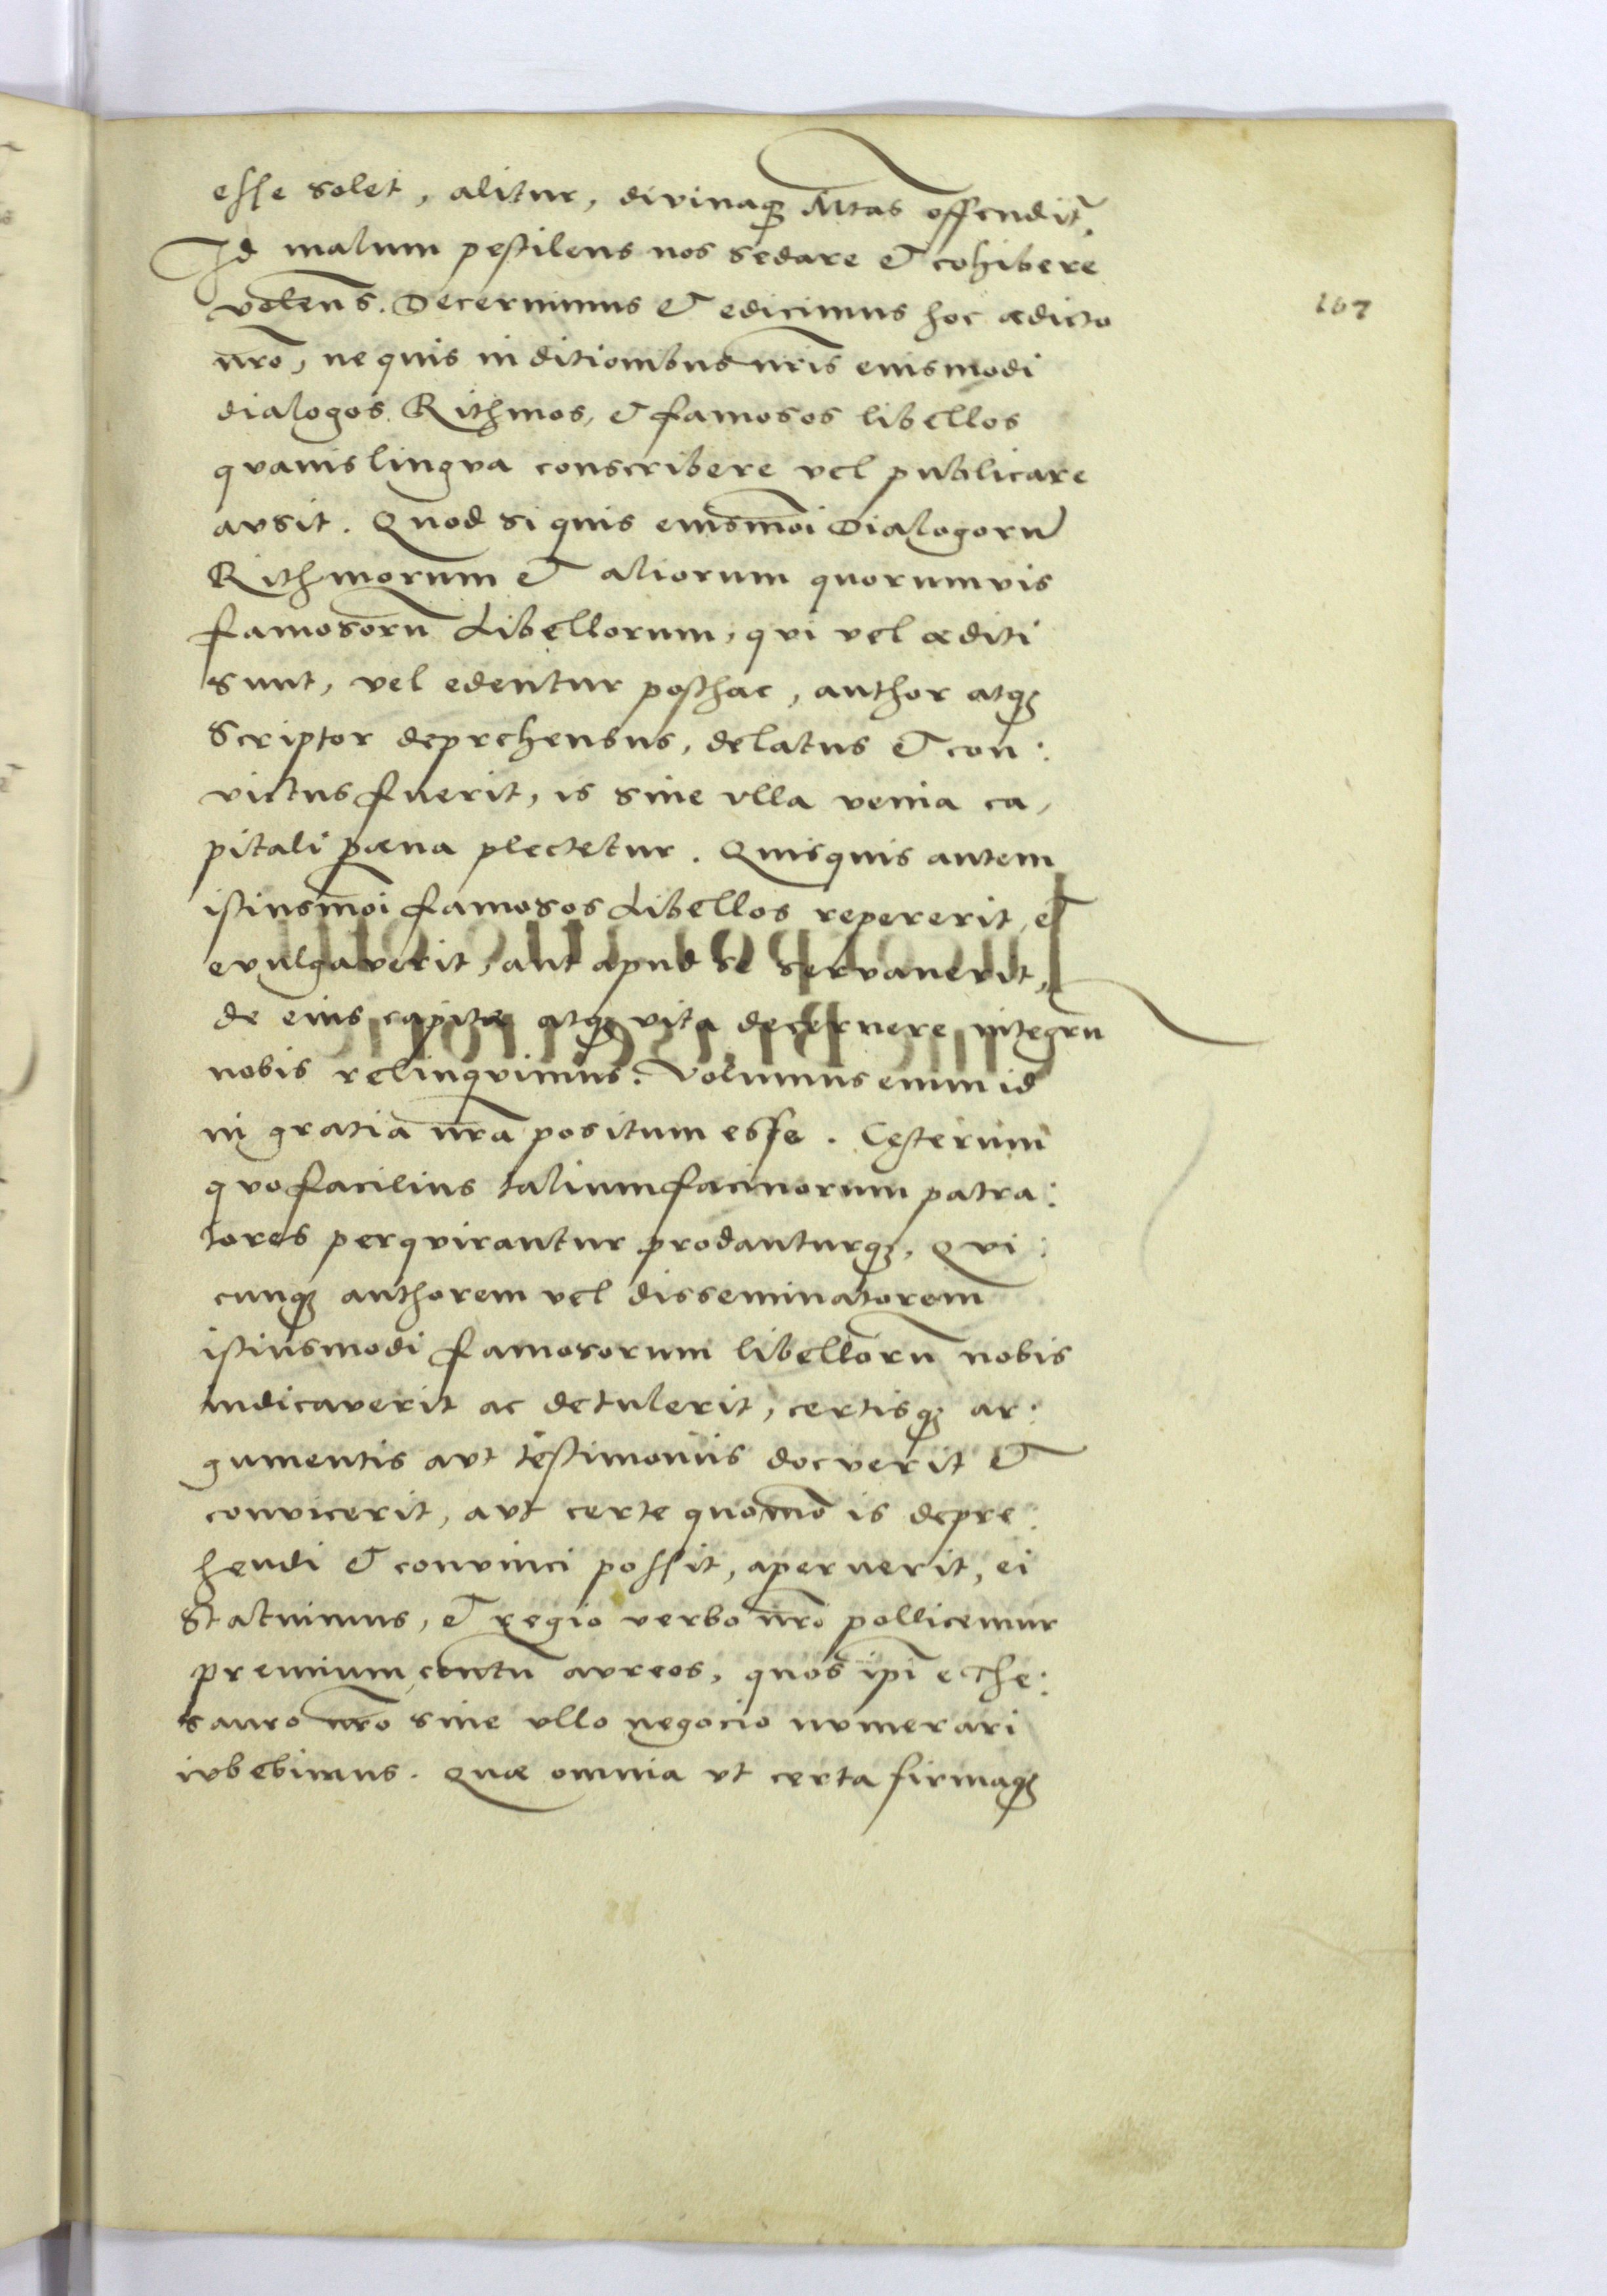 esse solet, alitur, divinaqȝ Mtas offendit̃.
Id malum pestilens nos sedare & cohibere
volens. Decernimus & edicimus hoc ædicto
nrõ, ne quis in ditionibus nris̃ eiusmodi
dialogos Rithmos, & famosos libellos
quavis lingva conscribere vel publicare
avsit. Quod si quis eiusmõi Dialogorũ
Rithmorum & aliorum quorumvis
famosorũ Libellorum, qvi vel æditi
sunt, vel edentur posthac, author atqȝ
Scriptor deprehensus, delatus & con:
victus fuerit, is sine vlla venia ca,
pitali pæna plectetur. Quisquis autem
istiusmõi famosos Libellos repererit, &
evulgaverit, aut apud se servauerit,
de eius capite atqȝ vita decernere integrũ
nobis relinqvimus. Volumus enim id
in gratiã nrã positum esse. Cęterum
qvo facilius talium facinorum patra:
tores perqvirantur prodanturqȝ, Qvi:
cunqȝ authorem vel disseminatorem
istiusmodi famosorum libellorũ nobis
indicaverit ac detulerit, certisqȝ ar:
gumentis avt testimoniis docverit &
convicerit, avt certe quomõ is depre:
hendi & convinci possit, aperuerit, ei
Statuimus, & regio verbo nrõ pollicemur
premium centũ avreos, quos ipĩ e The:
sauro nrõ sine vllo negocio nvmerari
ivbebimus. Quæ omnia vt certa firmaqȝ
167